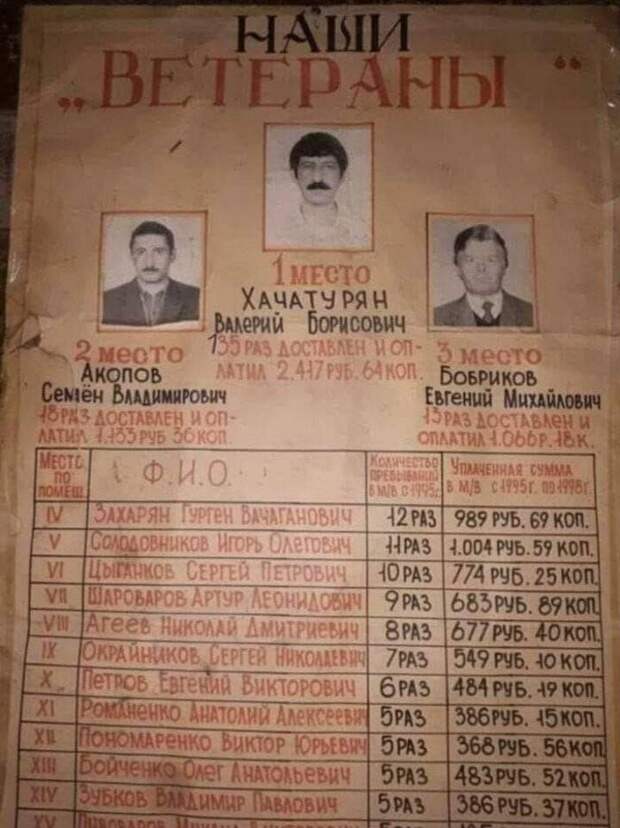 НАШИ
„ВЕТЕРАНЫ“
1 МЕСТО
ХАЧАТУРЯН
ВАЛЕРИЙ БОРИСОВИЧ
135 РАЗ ДОСТАВЛЕН И ОП-
ЛАТИЛ 2.417 РУБ. 64 КОП.
2 МЕСТО
АКОПОВ
СЕМЁН ВЛАДИМИРОВИЧ
18 РАЗ ДОСТАВЛЕН И ОП-
ЛАТИЛ 1.133 РУБ 36 КОП.
3 МЕСТО
БОБРИКОВ
ЕВГЕНИЙ МИХАЙЛОВИЧ
13 РАЗ ДОСТАВЛЕН И
ОПЛАТИЛ 1.066 Р. 18 К.
МЕСТО ПО ПОМЕЩ. Ф.И.О. КОЛИЧЕСТВО ПРЕБЫВАНИЙ В М/В С 1995г. УПЛАЧЕННАЯ СУММА В М/В С 1995г. ПО 1998г.
IV ЗАХАРЯН ГУРГЕН ВАЧАГАНОВИЧ 12 РАЗ 989 РУБ. 69 КОП.
V СОЛОДОВНИКОВ ИГОРЬ ОЛЕГОВИЧ 11 РАЗ 1.004 РУБ. 59 КОП.
VI ЦЫГАНКОВ СЕРГЕЙ ПЕТРОВИЧ 10 РАЗ 774 РУБ. 25 КОП.
VII ШАРОВАРОВ АРТУР ЛЕОНИДОВИЧ 9 РАЗ 683 РУБ. 89 КОП.
VIII АГЕЕВ НИКОЛАЙ ДМИТРИЕВИЧ 8 РАЗ 677 РУБ. 40 КОП.
IX ОКРАЙНИКОВ СЕРГЕЙ НИКОЛАЕВИЧ 7 РАЗ 549 РУБ. 10 КОП.
X ПЕТРОВ ЕВГЕНИЙ ВИКТОРОВИЧ 6 РАЗ 484 РУБ. 19 КОП.
XI РОМАНЕНКО АНАТОЛИЙ АЛЕКСЕЕВИЧ 5 РАЗ 386 РУБ. 15 КОП.
XII ПОНОМАРЕНКО ВИКТОР ЮРЬЕВИЧ 5 РАЗ 368 РУБ. 56 КОП.
XIII БОЙЧЕНКО ОЛЕГ АНАТОЛЬЕВИЧ 5 РАЗ 483 РУБ. 52 КОП.
XIV ЗУБКОВ ВЛАДИМИР ПАВЛОВИЧ 5 РАЗ 386 РУБ. 37 КОП.
XV